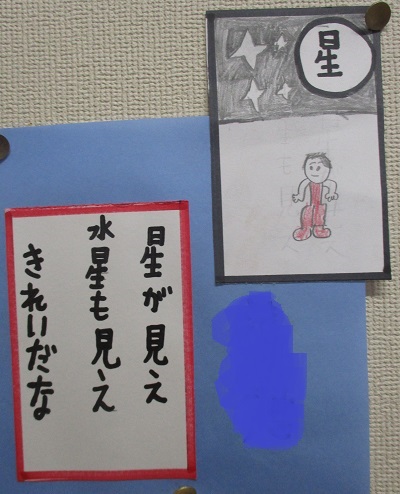 星
星が見え
水星も見え
きれいだな